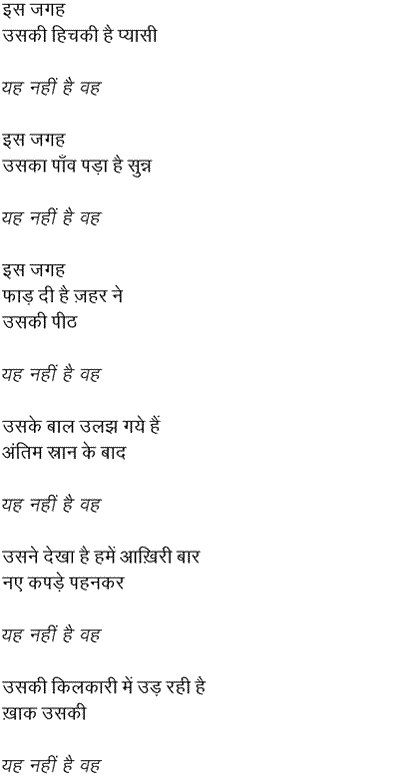 इस जगह
उसकी हिचकी है प्यासी
यह नहीं है वह
इस जगह
उसका पाँव पड़ा है सुन्न
यह नहीं है वह
इस जगह
फाड़ दी है ज़हर ने
उसकी पीठ
यह नहीं है वह
उसके बाल उलझ गये हैं
अंतिम स्नान के बाद
यह नहीं है वह
उसने देखा है हमें आख़िरी बार
नए कपड़े पहनकर
यह नहीं है वह
उसकी किलकारी में उड़ रही है
ख़ाक उसकी
यह नहीं है वह